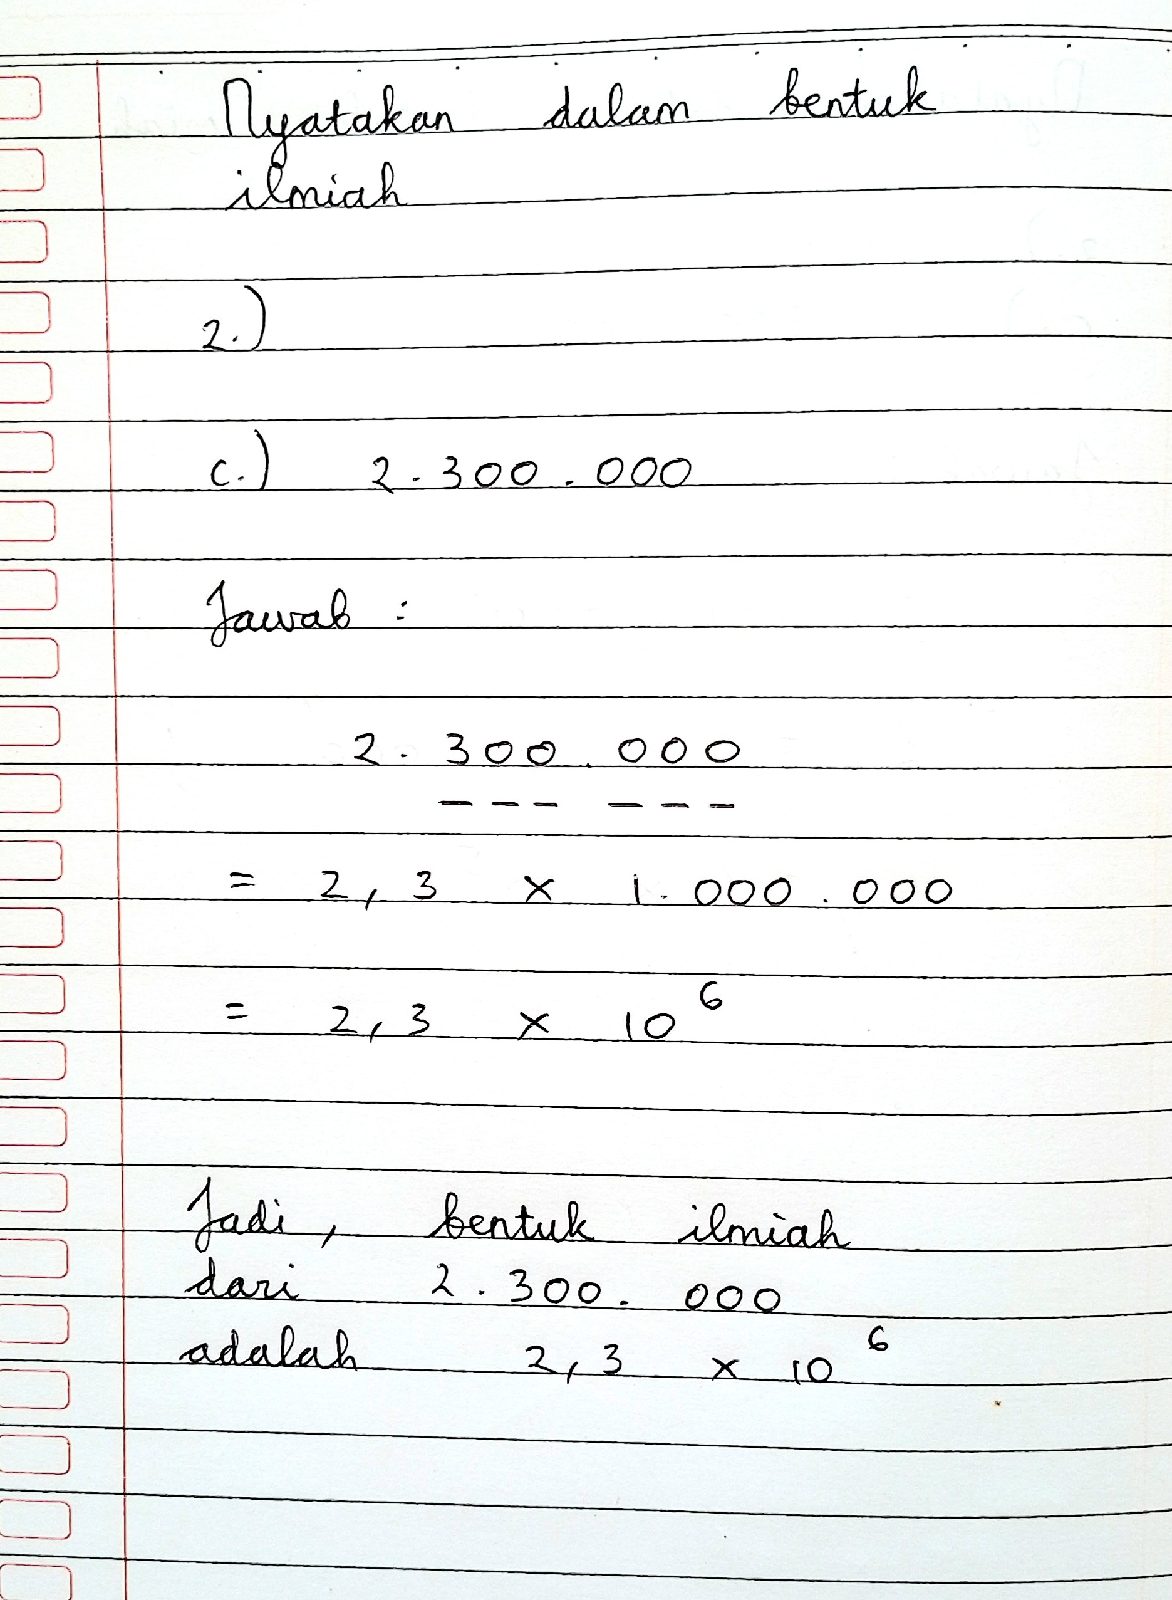 Nyatakan dalam bentuk
ilmiah
2.)
c.) 2.300.000
Jawab :
2.300.000
= 2,3 x 1.000.000
= 2,3 x 10⁶
Jadi, bentuk ilmiah
dari 2.300.000
adalah 2,3 x 10⁶